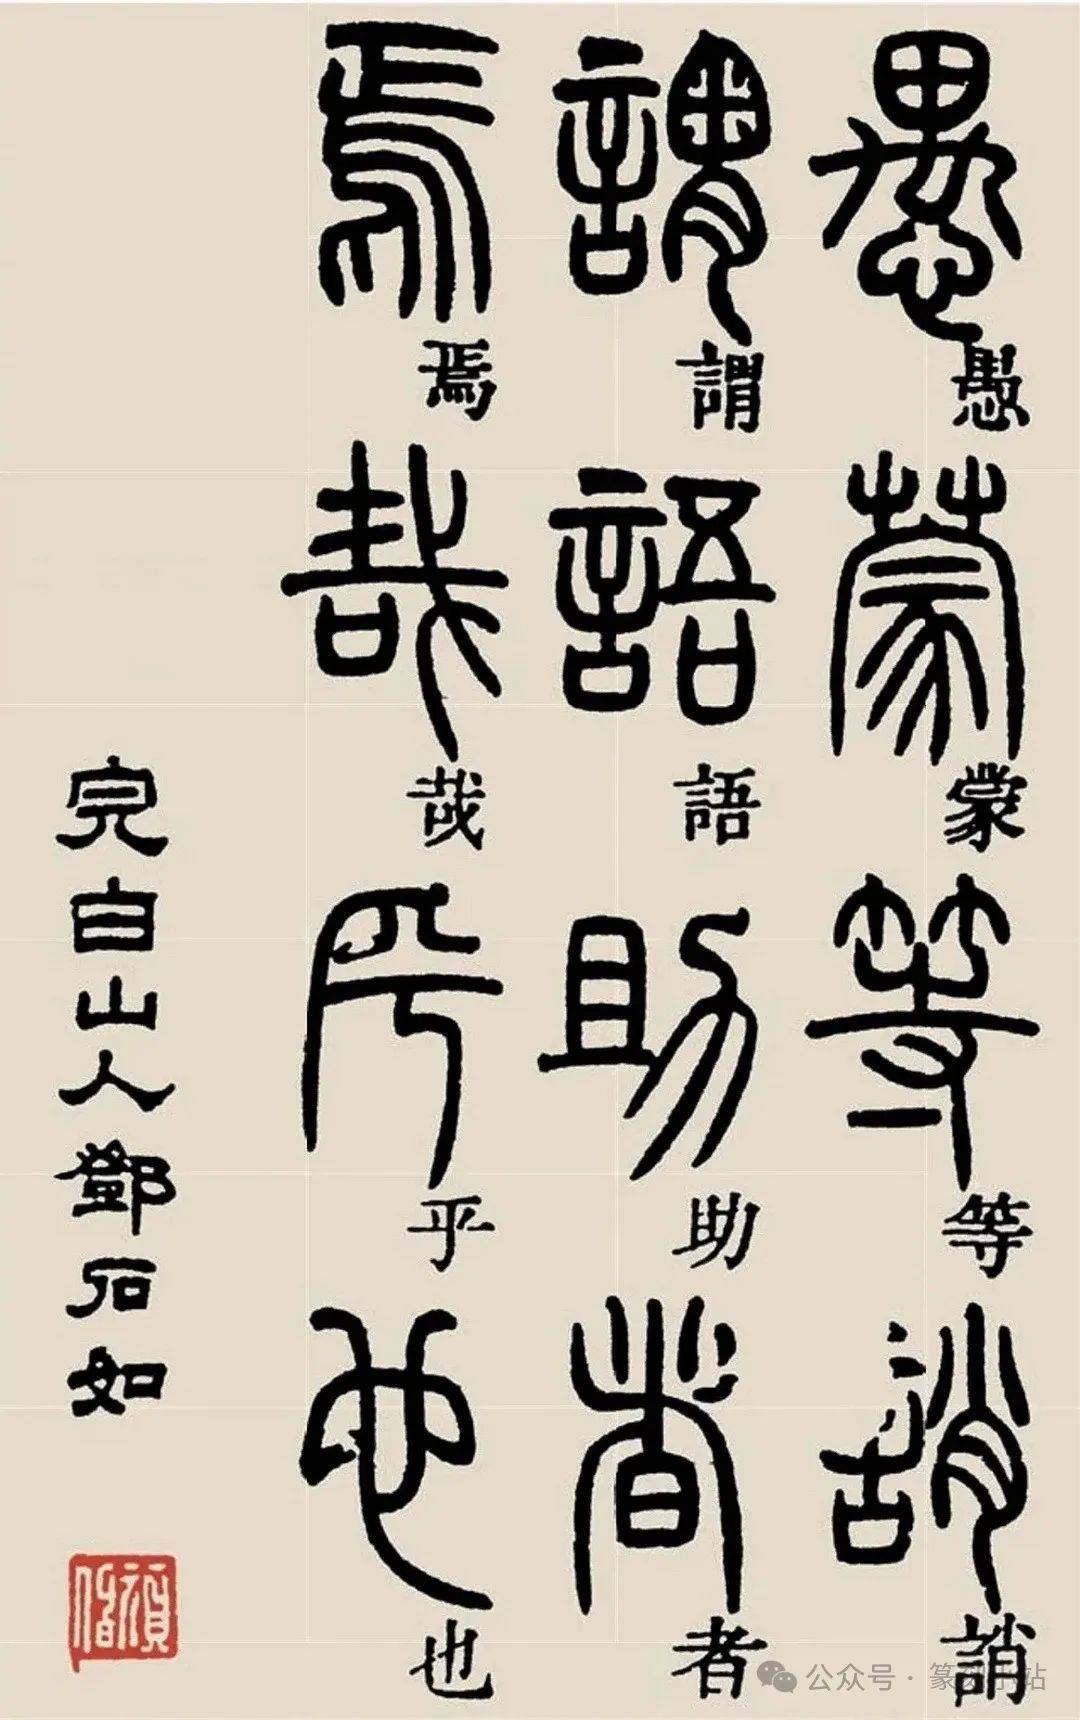 愚蒙等誚
愚蒙等誚
謂語助者
謂語助者
焉哉乎也
焉哉乎也
完白山人鄧石如
公众号·篆刻小站